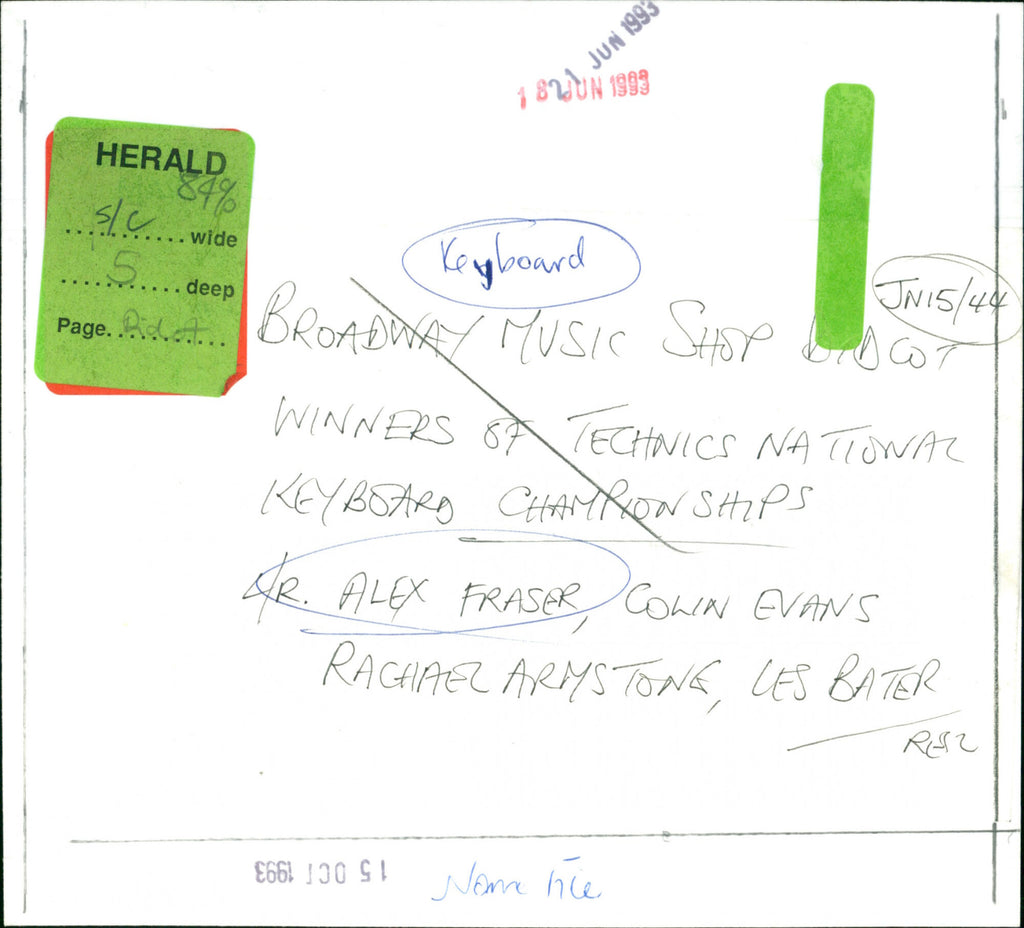 21 JUN 1993
18 JUN 1993
HERALD
84%
s/c wide
5 deep
Page. Didcot
Keyboard
JN15/44
BROADWAY MUSIC SHOP DIDCOT
WINNERS OF TECHNICS NATIONAL
KEYBOARD CHAMPIONSHIPS
L/R. ALEX FRASER, COLIN EVANS
RACHAEL ARMSTONG, LES BATER
15 OCT 1993
Name File